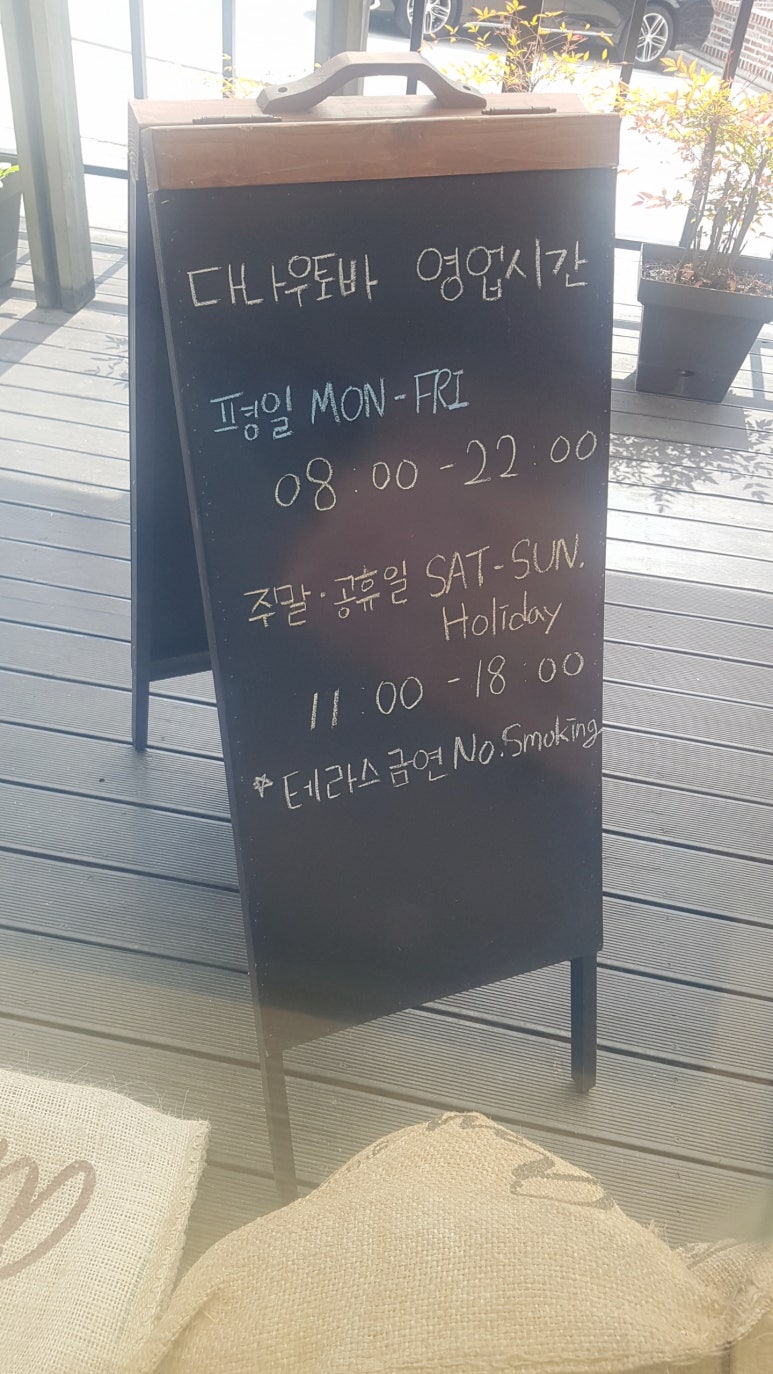 다나우토바 영업시간
평일 MON-FRI
08:00-22:00
주말·공휴일 SAT-SUN.
Holiday
11:00-18:00
*테라스금연 No.Smoking